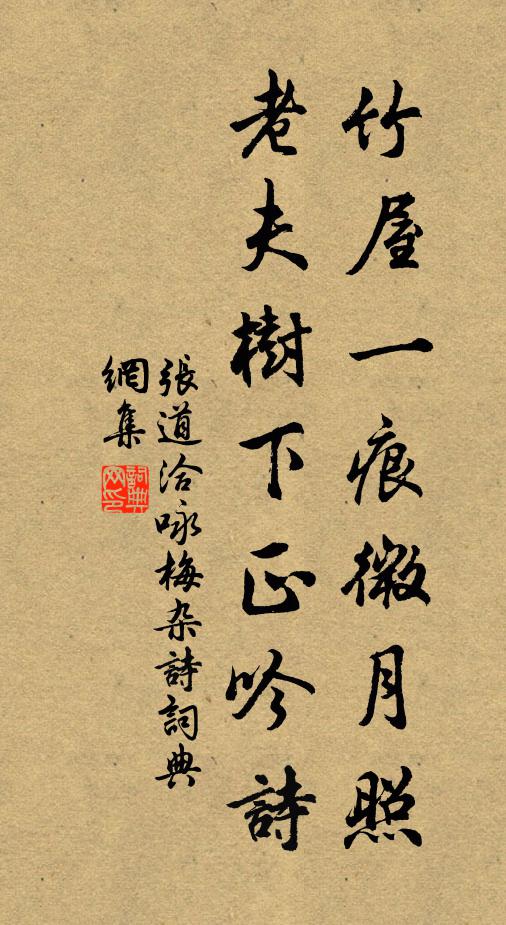 竹屋一痕微月照
老夫樹下正吟詩
張道洽咏梅杂詩詞典
網集
詞典
网印